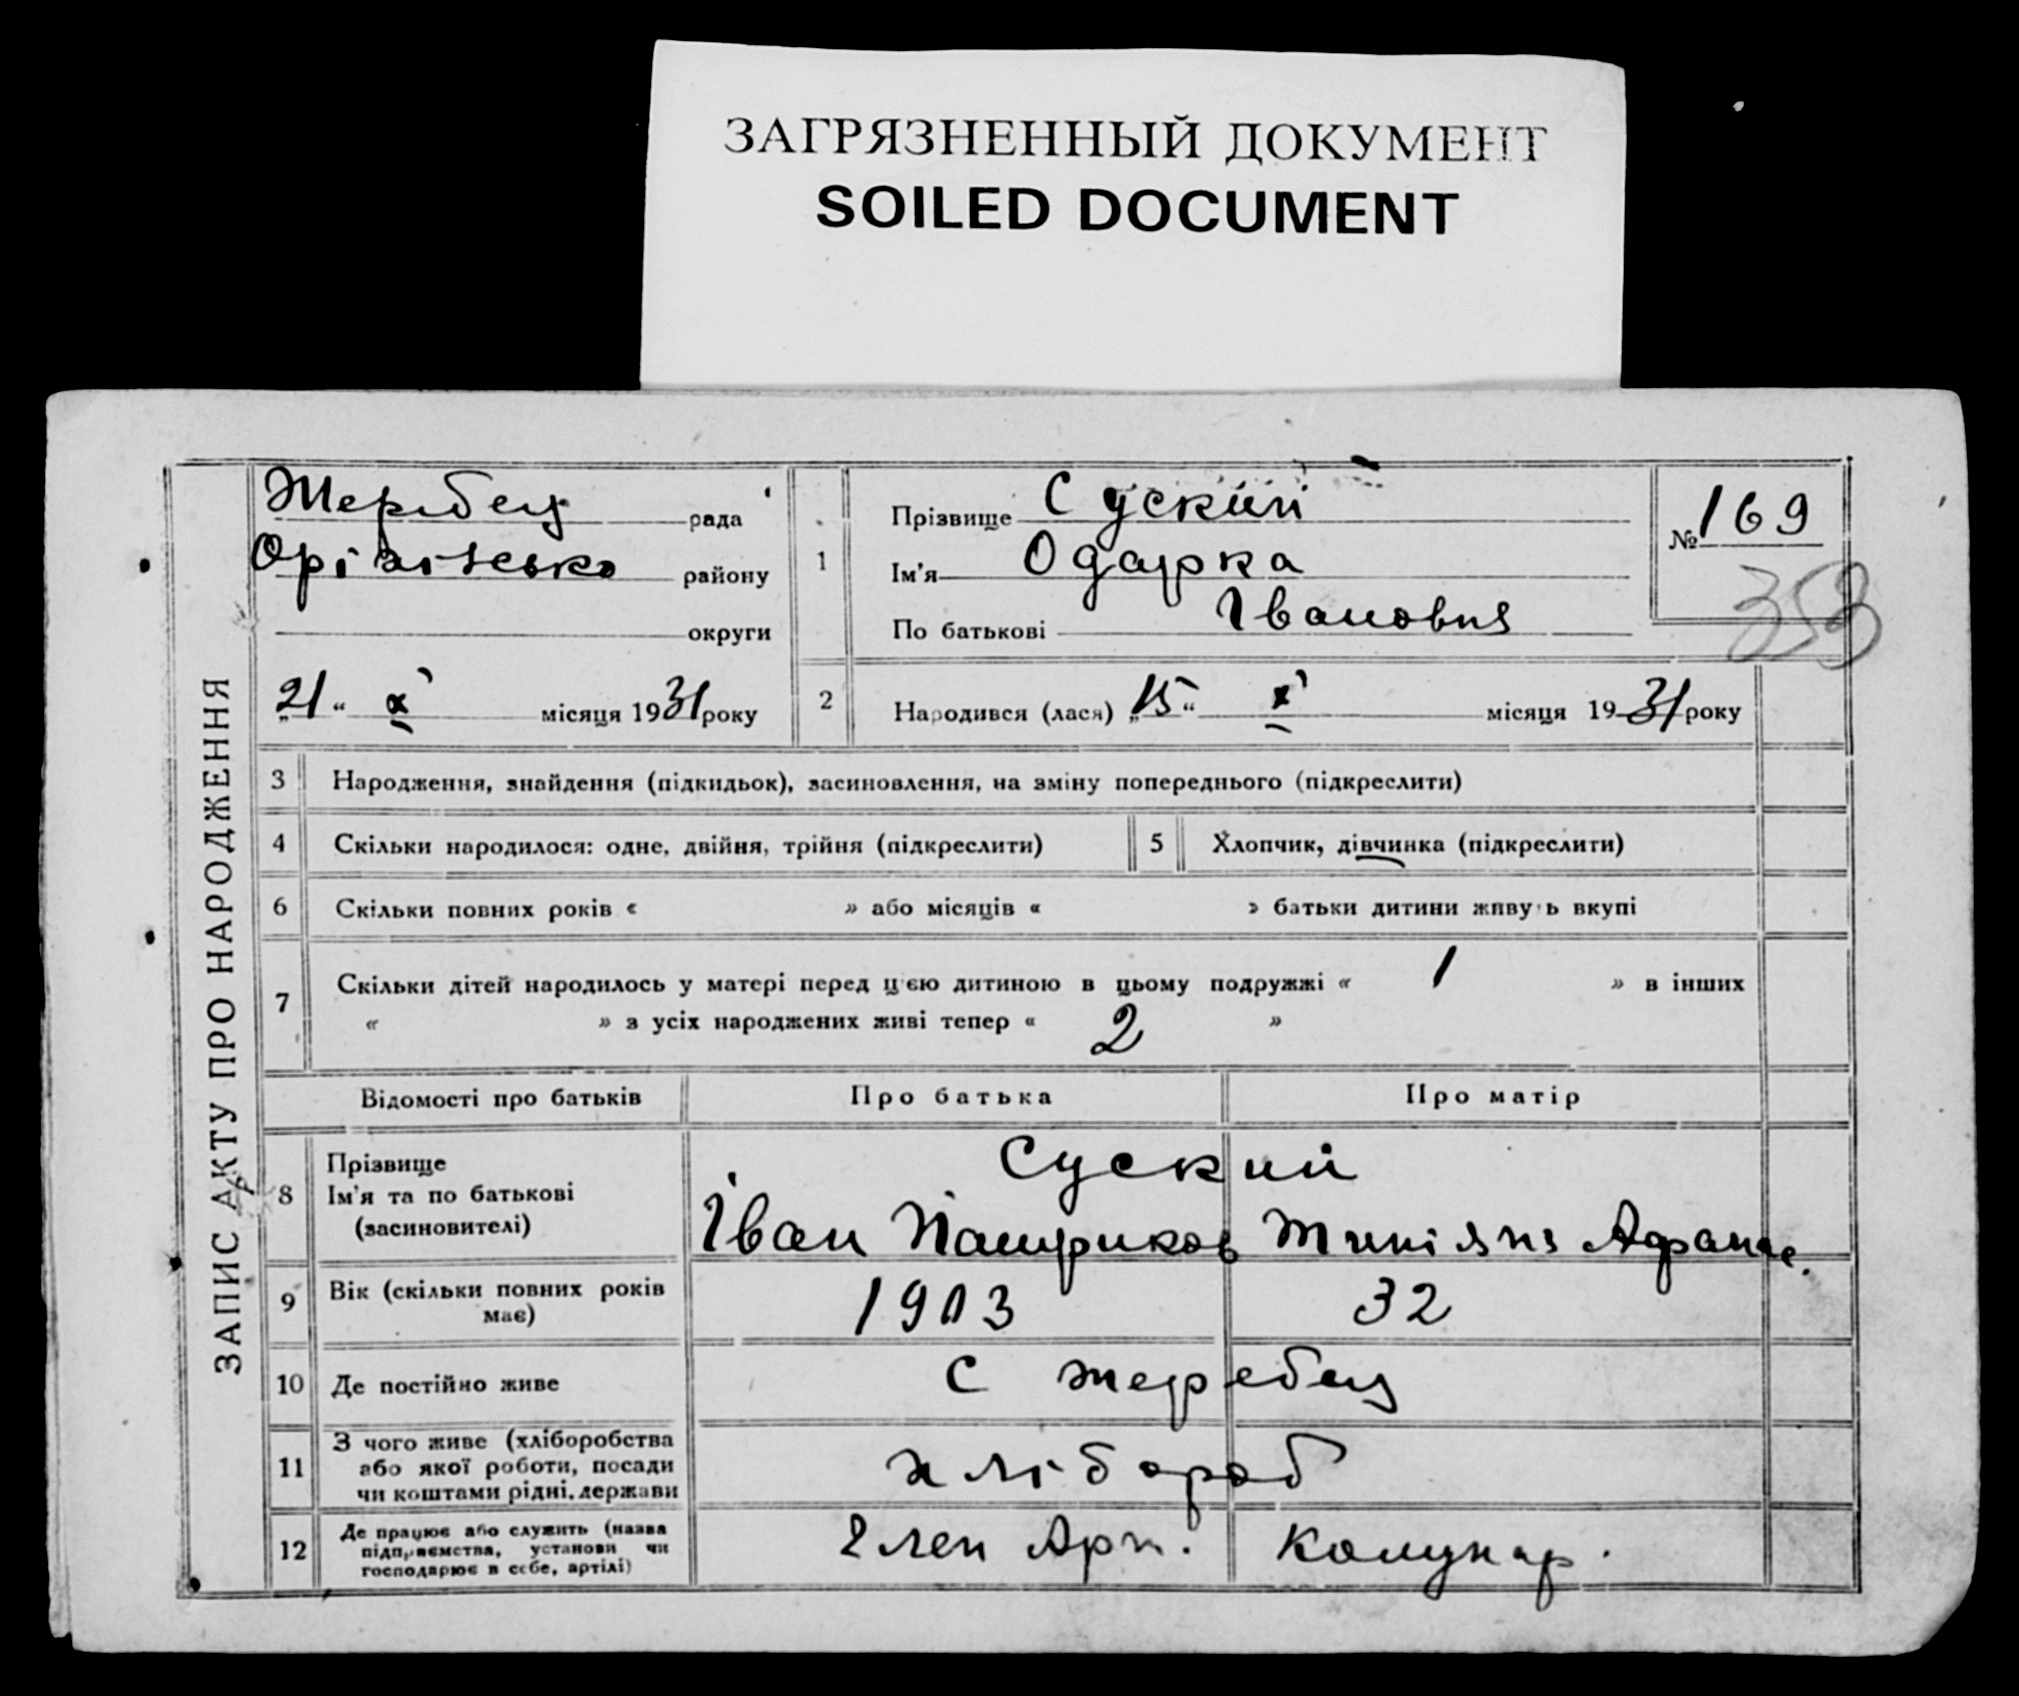 ЗАГРЯЗНЕННЫЙ ДОКУМЕНТ
SOILED DOCUMENT
ЗАПИС АКТУ ПРО НАРОДЖЕННЯ
Жеребец рада
району
округи
„21“ X місяця 1931 року
1
Прізвище Суский
Ім'я Одарка
По батькові Івановна
№ 169
353
2 Народився (лася) „15“ X місяця 1931 року
3 Народження, знайдення (підкидьок), засиновлення, на зміну попереднього (підкреслити)
4 Скільки народилося: одне, двійня, трійня (підкреслити)
5 Хлопчик, дівчинка (підкреслити)
6 Скільки повних років « » або місяців « » батьки дитини живуть вкупі
7 Скільки дітей народилось у матері перед цією дитиною в цьому подружжі « 1 » в інших
« » з усіх народжених живі тепер « 2 »
Відомості про батьків Про батька Про матір
8 Прізвище
Ім'я та по батькові
(засиновителі)
Суский
Іван
9 Вік (скільки повних років
має)
1903 32
10 Де постійно живе с жеребец
11 З чого живе (хліборобства
або якої роботи, посади
чи коштами рідні, держави
хлібороб
12 Де працює або служить (назва
підприємства, установи чи
господарює в себе, артілі)
Комунар.